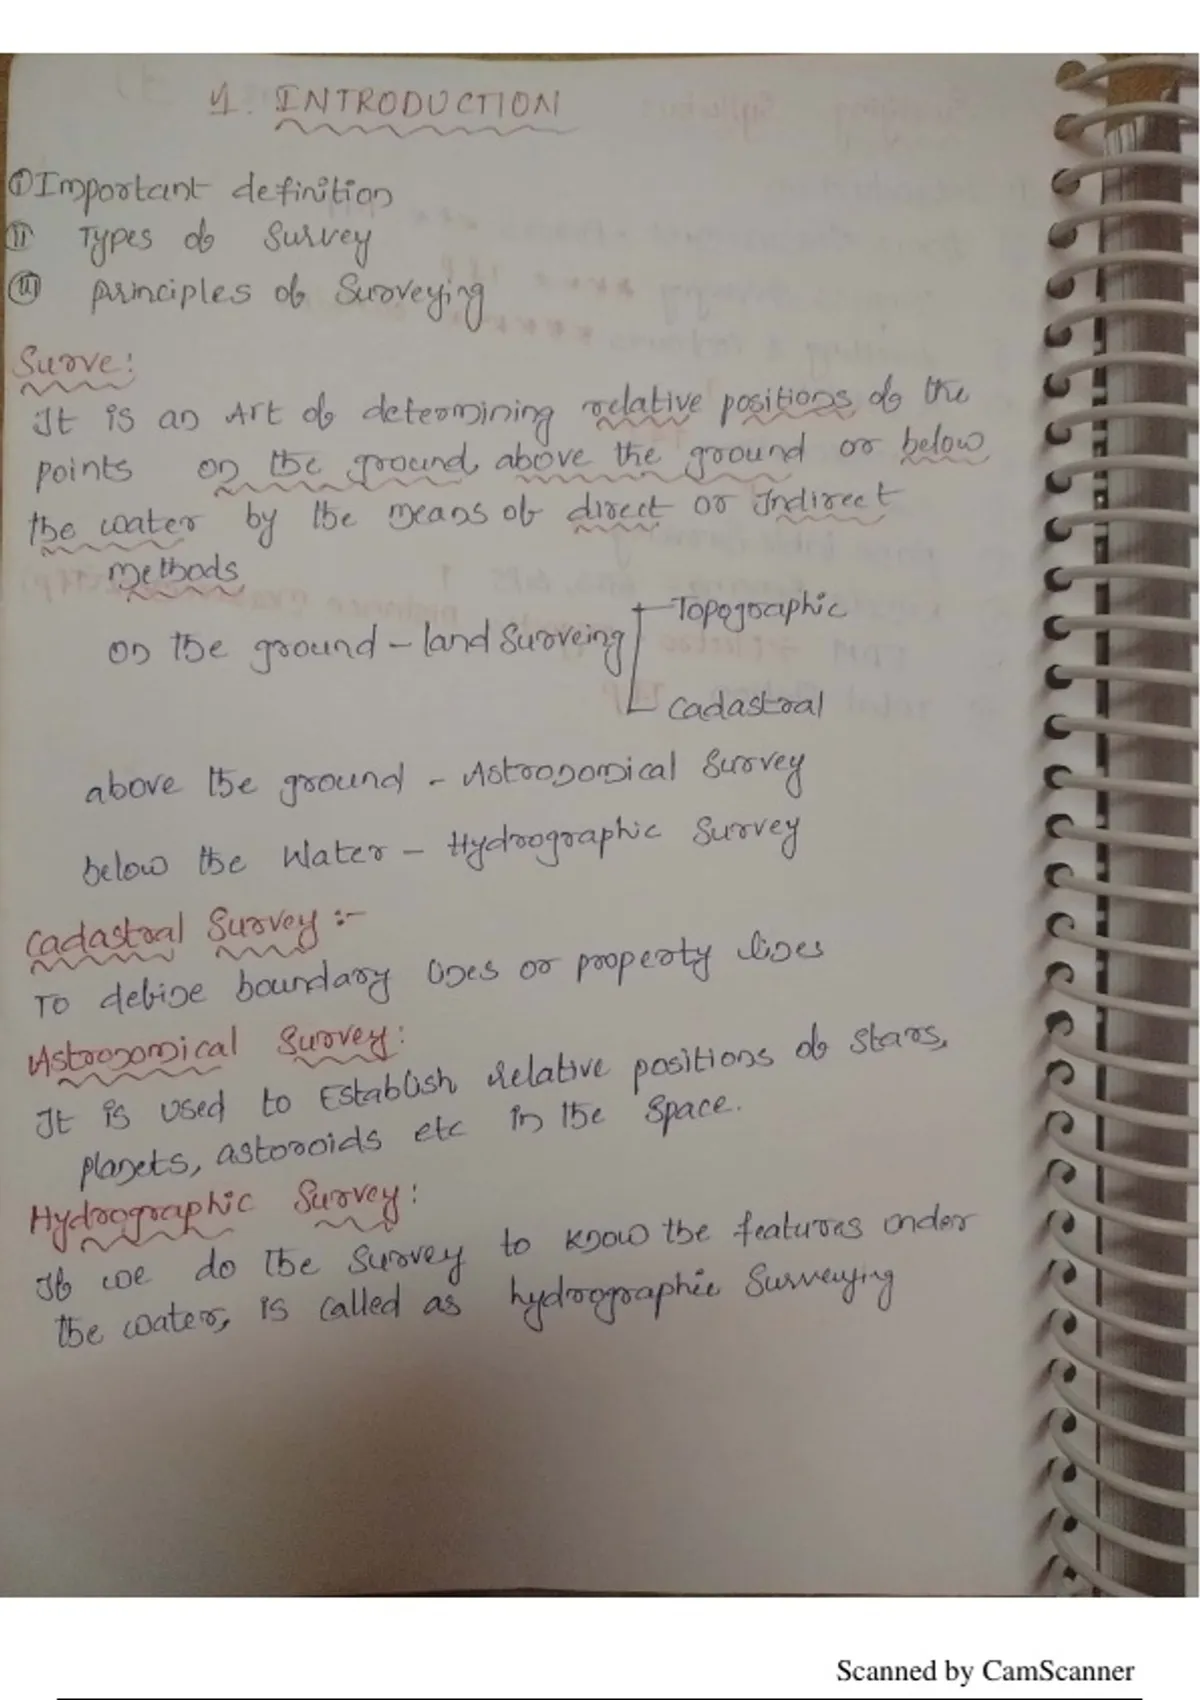 1. INTRODUCTION
① Important definition
ⓘⓘ Types of Survey
ⓘⓘⓘ principles of Surveying
Surve:
It is an Art of determining relative positions of the
points on the ground, above the ground or below
the water by the means of direct or Indirect
methods
on the ground - land Surveing
Topographic
Cadastral
above the ground - Astronomical Survey
below the Water - Hydrographic Survey
Cadastral Survey :-
To define boundary lines or property lines
Astronomical Survey:
It is used to Establish relative positions of stars,
planets, astoroids etc in the space.
Hydrographic Survey:
If we do the survey to know the features under
the water, is called as hydrographic Surveying
Scanned by CamScanner